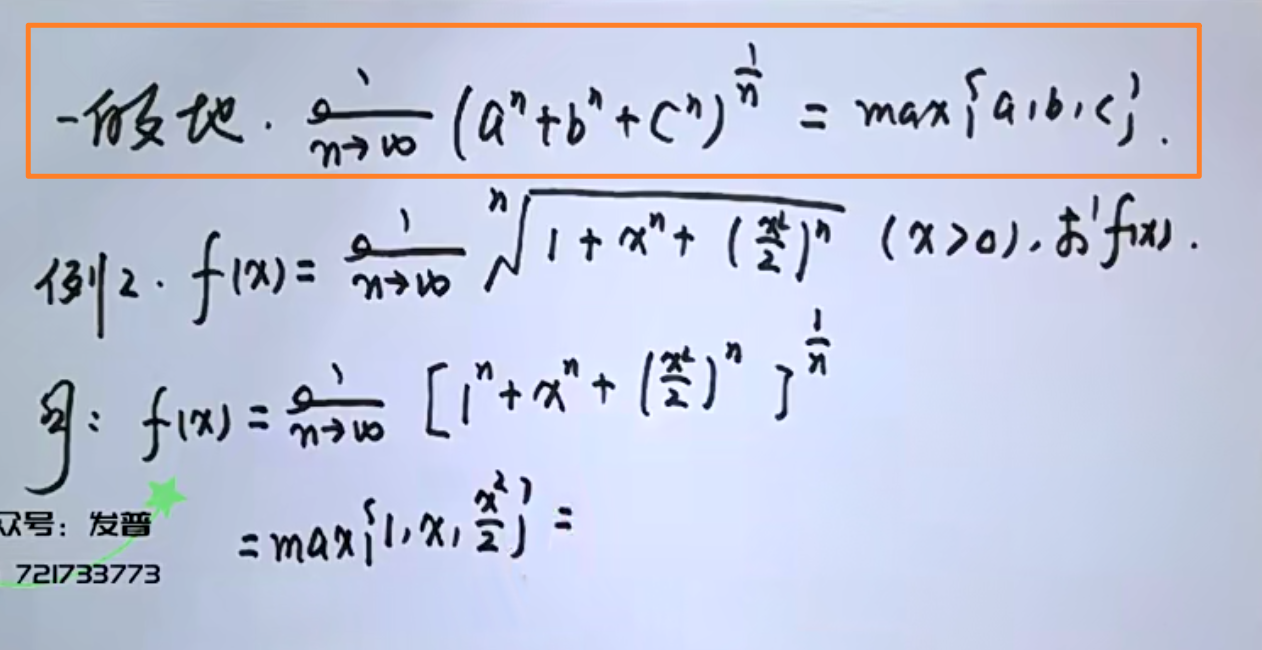 一般地. lim n→∞ (aⁿ+bⁿ+cⁿ)^(1/n) = max{a,b,c}.
例2. f(x) = lim n→∞ ⁿ√(1+xⁿ+(x²/2)ⁿ) (x>0), 求f(x).
解: f(x) = lim n→∞ [1ⁿ+xⁿ+(x²/2)ⁿ]^(1/n)
= max{1,x,x²/2} =
众号: 发普
721733773